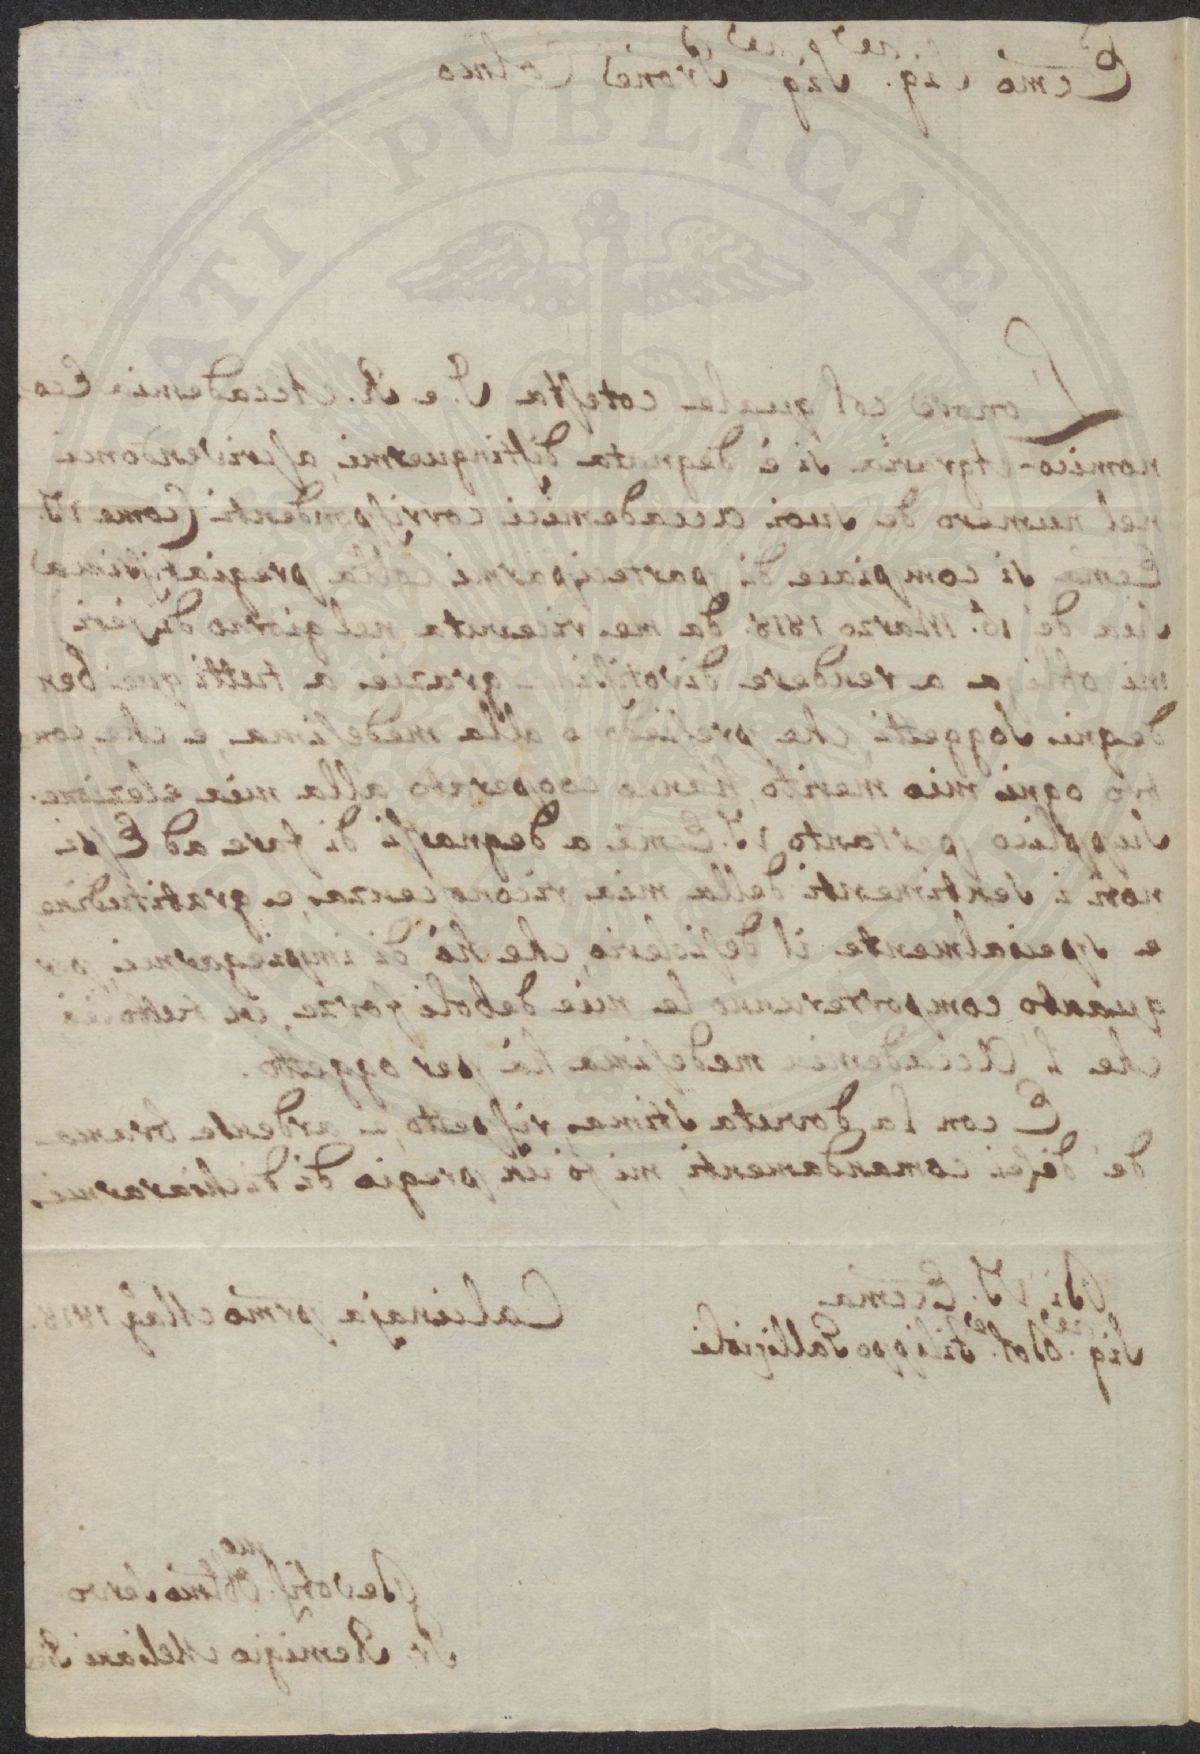 Eccmo Sig.re Sig.re Prone Colmo
L'onore col quale cotesta I. e R. Accademia Eco-
nomico-Agraria si è degnata distinguermi, ascrivendomi
nel numero de suoi Accademici corrispondenti (come V.S.
Eccma si compiace di parteciparmi colla pregiatissima
sua de' 16. Marzo 1818. da me ricevuta nel giorno di jeri)
mi obbliga a rendere divotissime grazie a tutti quei ben
degni Soggetti che presiedono alla medesima, e che, con-
tro ogni mio merito, hanno cooperato alla mia elezione.
Supplico pertanto V.S. Eccma a degnarsi di fare ad Essi
noti i sentimenti della mia riconoscenza, e gratitudine,
e specialmente il desiderio, che hò di impiegarmi, per
quanto comporteranno le mie deboli forze, in tutto ciò
che l'Accademia medesima hà per oggetto.
E con la dovuta stima, rispetto, e ardente brama
de' di lei comandamenti, mi fò un pregio di dichiararmi
Di V.S. Eccma
Sig.re Dot.re Filippo Gallizioli
Calcinaja primo Mag. 1818.
Devotis. Obbmo Servo
Remigio Meliani
PUBLICAE